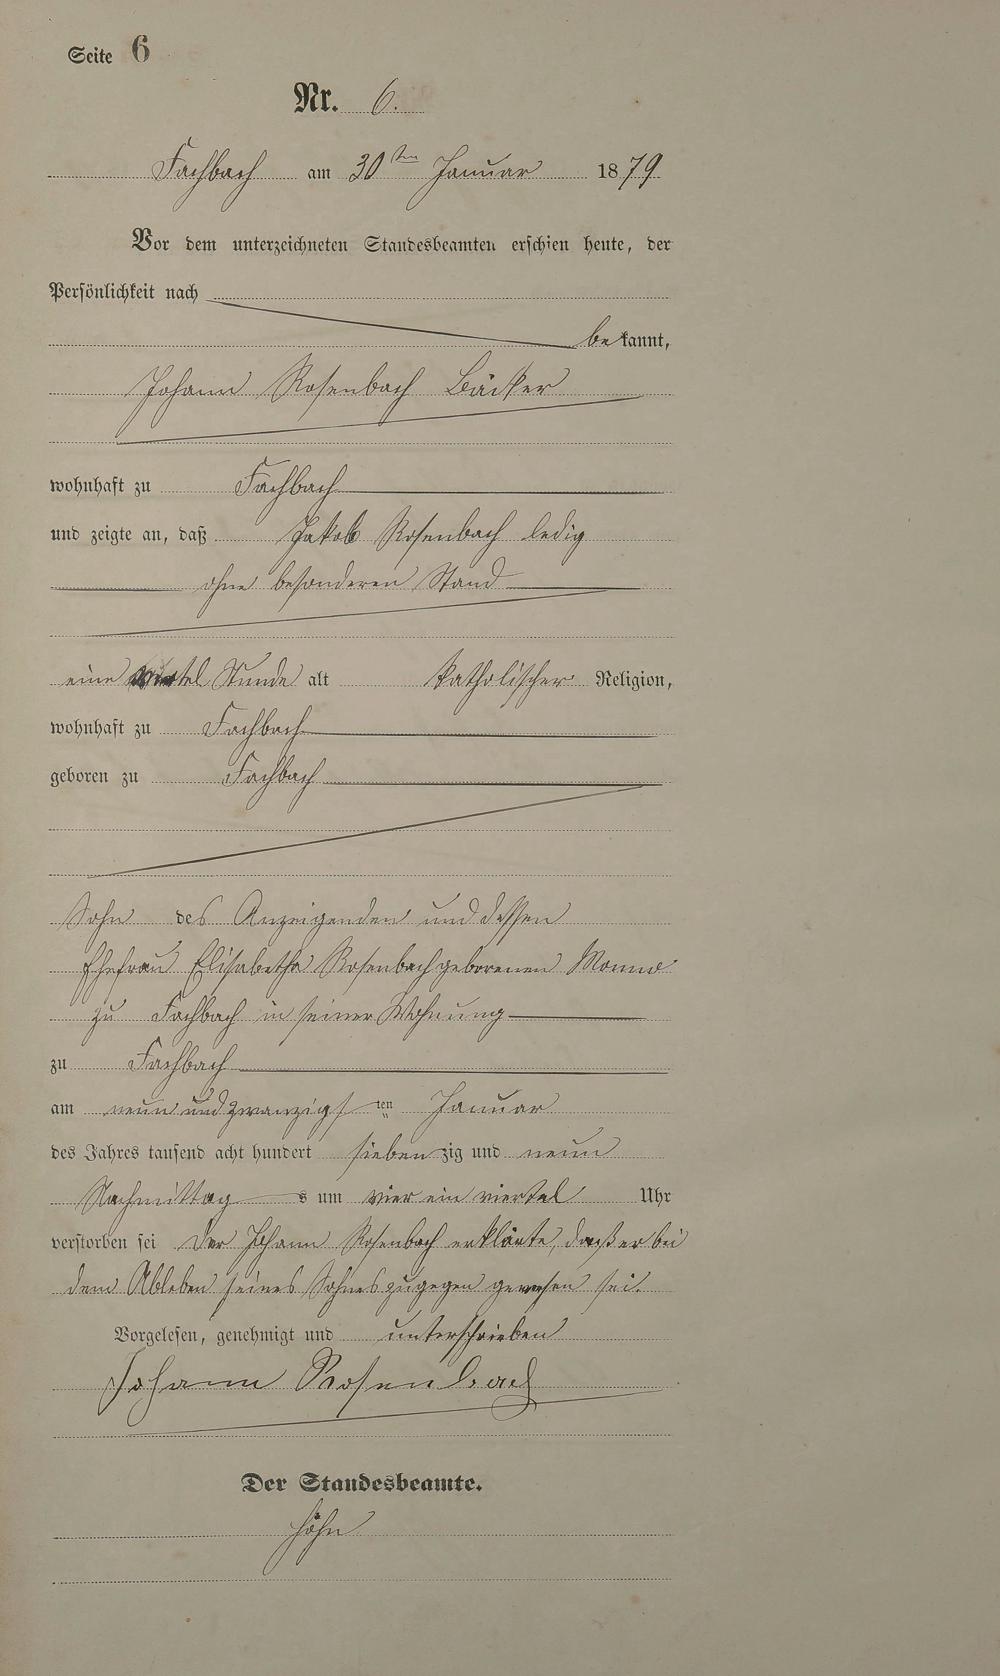 Seite 6
Nr. 6.
Fachbach am 30ten Januar 1879
Vor dem unterzeichneten Standesbeamten erschien heute, der
Persönlichkeit nach
bekannt,
Johann Rosenbach Bäcker
wohnhaft zu Fachbach
und zeigte an, daß Jakob Rosenbach ledig
ohne besonderen Stand
eine viertel Stunde alt katholischer Religion,
wohnhaft zu Fachbach
geboren zu Fachbach
Sohn des Anzeigenden und dessen
Ehefrau Elisabetha Rosenbach geborenen
zu Fachbach in seiner Wohnung
zu Fachbach
am neun und zwanzigsten Januar
des Jahres tausend acht hundert siebenzig und neun
Nachmittags um vier ein viertel Uhr
verstorben sei der Johann Rosenbach erklärte, daß er bei
dem Ableben seines Sohnes zugegen gewesen sei.
Vorgelesen, genehmigt und unterschrieben
Johann Rosenbach
Der Standesbeamte.
Höhn